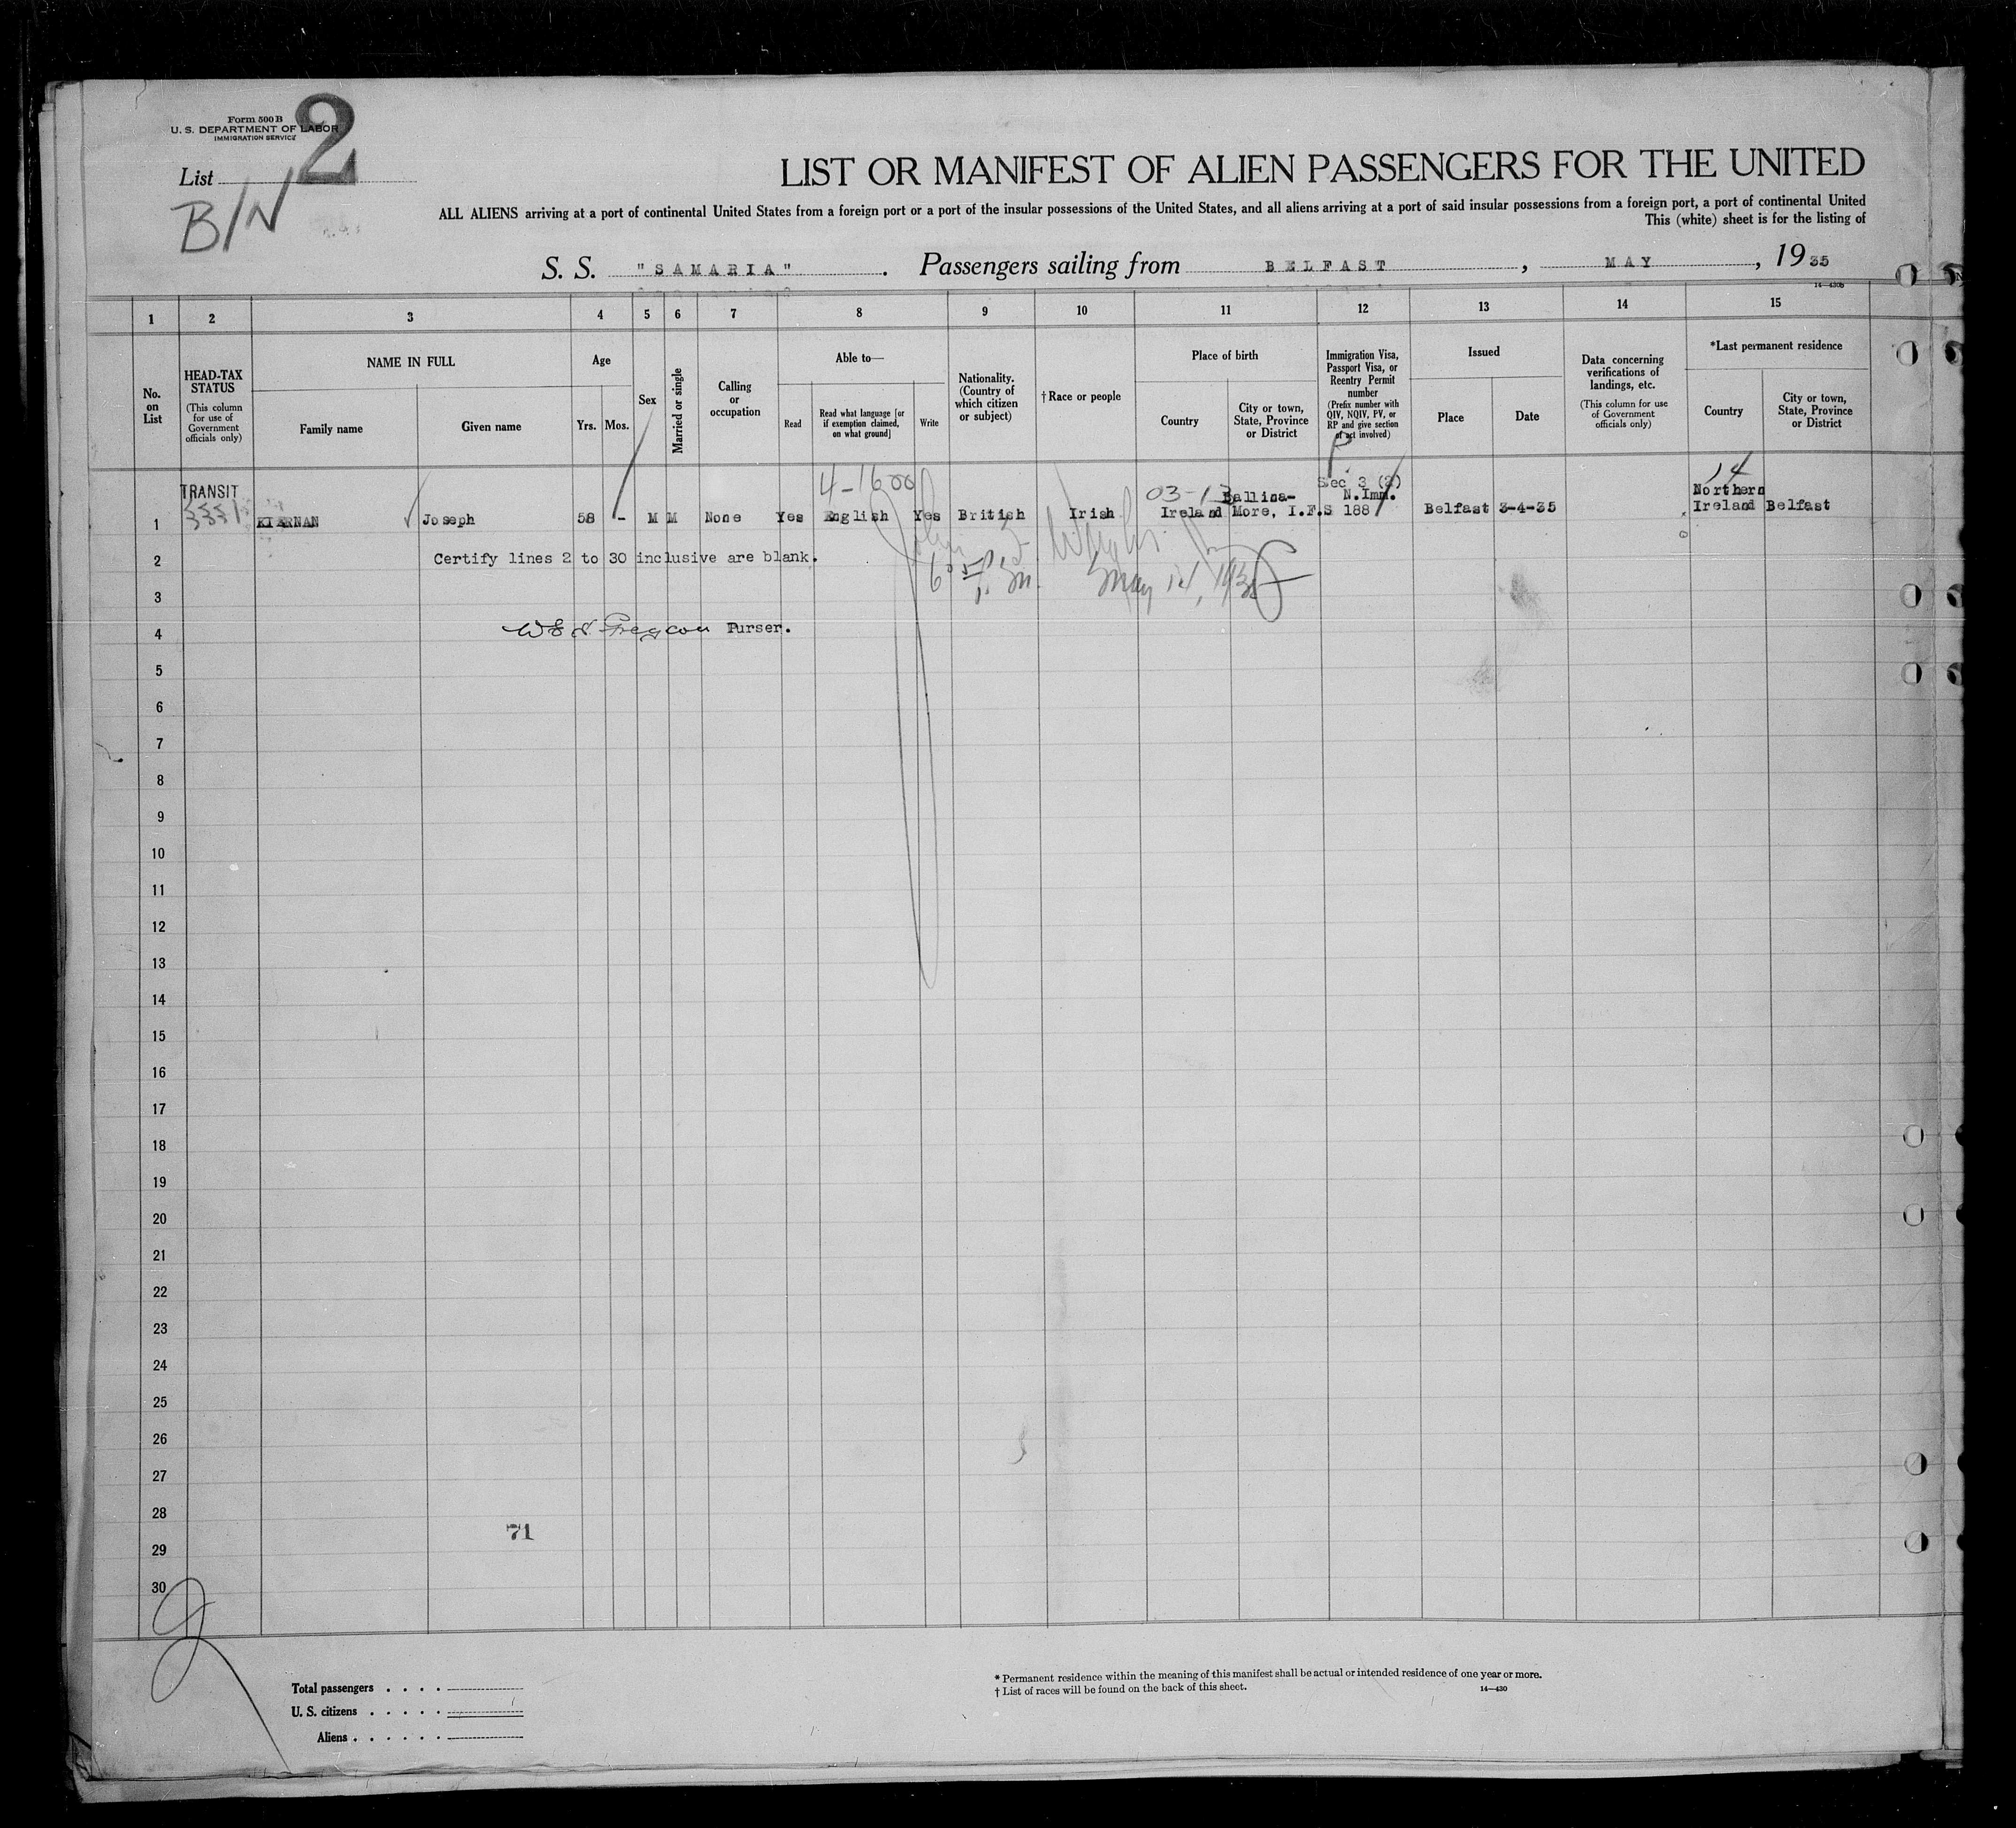 Form 500 B
U. S. DEPARTMENT OF LABOR
IMMIGRATION SERVICE
2
List
B/N
LIST OR MANIFEST OF ALIEN PASSENGERS FOR THE UNITED
ALL ALIENS arriving at a port of continental United States from a foreign port or a port of the insular possessions of the United States, and all aliens arriving at a port of said insular possessions from a foreign port, a port of continental United
This (white) sheet is for the listing of
S. S. "SAMARIA". Passengers sailing from BELFAST, MAY, 1935
14—430b
1 2 3 4 5 6 7 8 9 10 11 12 13 14 15
No. on List
HEAD-TAX STATUS
(This column for use of Government officials only)
NAME IN FULL
Family name
Given name
Age
Yrs. Mos.
Sex
Married or single
Calling or occupation
Able to—
Read
Read what language [or if exemption claimed, on what ground]
Write
Nationality. (Country of which citizen or subject)
†Race or people
Place of birth
Country
City or town, State, Province or District
Immigration Visa, Passport Visa, or Reentry Permit number
(Prefix number with QIV, NQIV, PV, or RP and give section of act involved)
Issued
Place
Date
Data concerning verifications of landings, etc.
(This column for use of Government officials only)
*Last permanent residence
Country
City or town, State, Province or District
P.
TRANSIT 4-1600 03-13 Sec 3 (3) 14
Ballina- N.Imm. Northern
1 KIERNAN Joseph 58 - M M None Yes English Yes British Irish Ireland More, I.F.S 188 Belfast 3-4-35 Ireland Belfast
2 Certify lines 2 to 30 inclusive are blank.
May 14, 1935
3
4 Purser.
5
6
7
8
9
10
11
12
13
14
15
16
17
18
19
20
21
22
23
24
25
26
27
28
71
29
30
Total passengers . . . .
U. S. citizens . . . . .
Aliens . . . . . .
* Permanent residence within the meaning of this manifest shall be actual or intended residence of one year or more.
† List of races will be found on the back of this sheet.
14—430